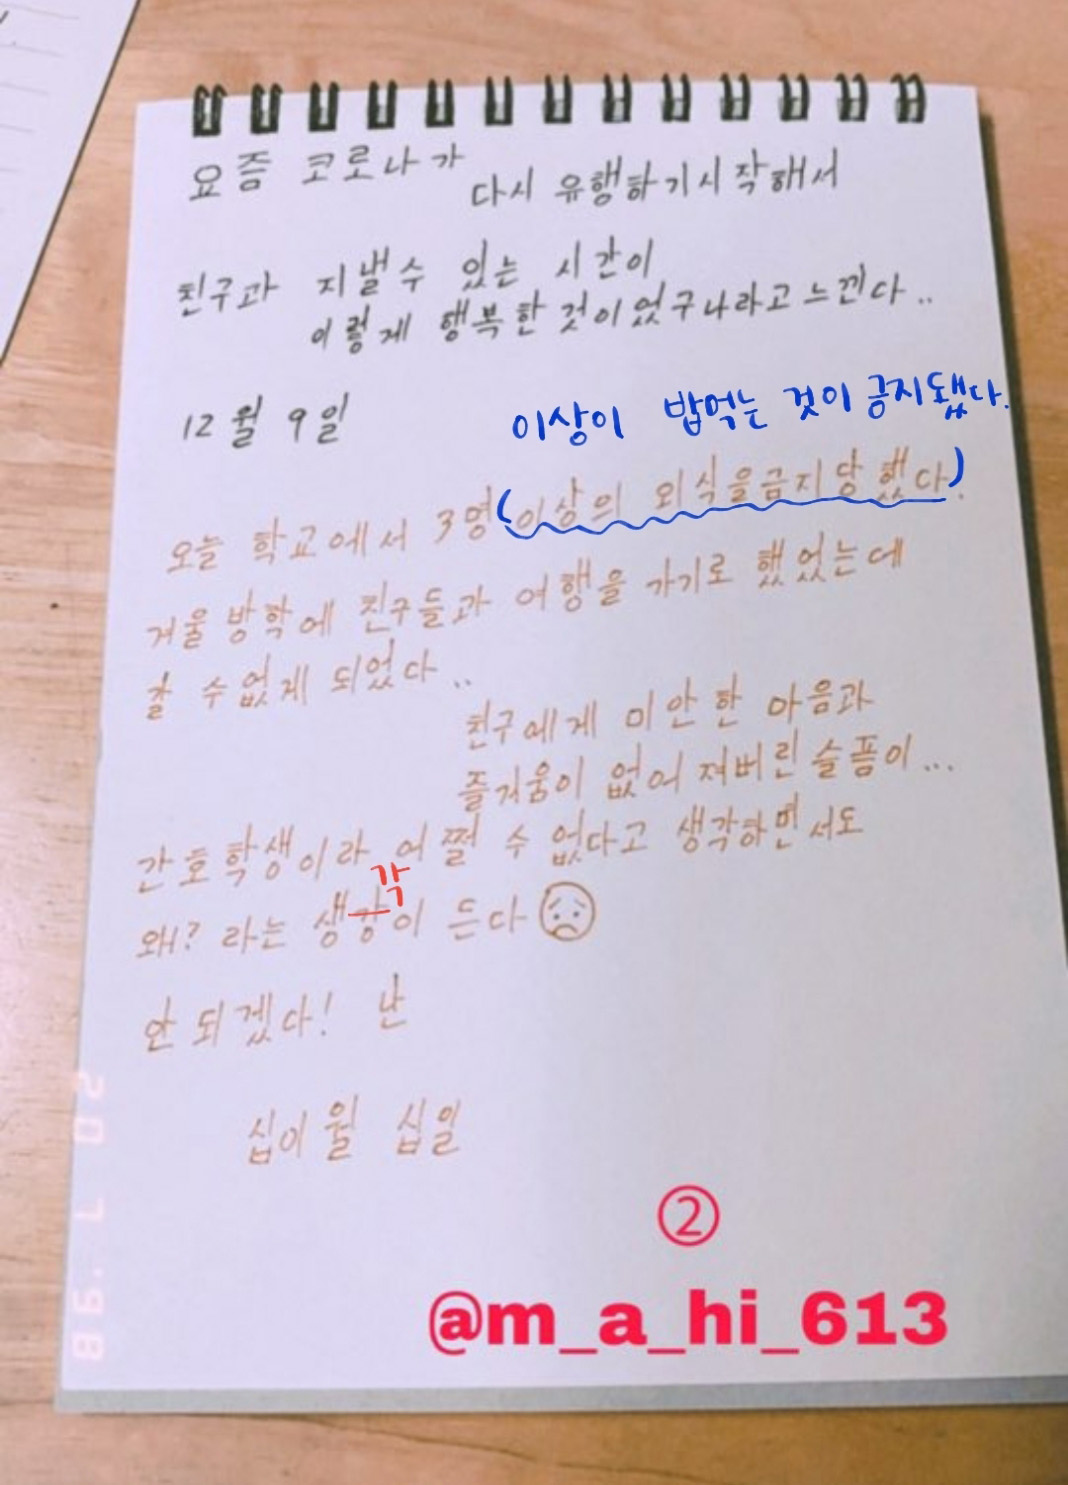 요즘 코로나가
다시 유행하기시작해서
친구과 지낼수 있는 시간이
이렇게 행복한것이었구나라고느낀다..
12월 9일
이상이 밥먹는 것이 금지됐다.
오늘 학교에서 3명(이상의 외식을금지당했다.)
겨울 방학에 친구들과 여행을 가기로 했었는데
갈 수없게 되었다..
친구에게 미안한 마음과
즐거움이 없어져버린 슬픔이...
간호학생이라 어쩔 수 없다고 생각하면서도
각
왜? 라는 생강이 든다
안 되겠다! 난
십이월 십일
②
@m_a_hi_613